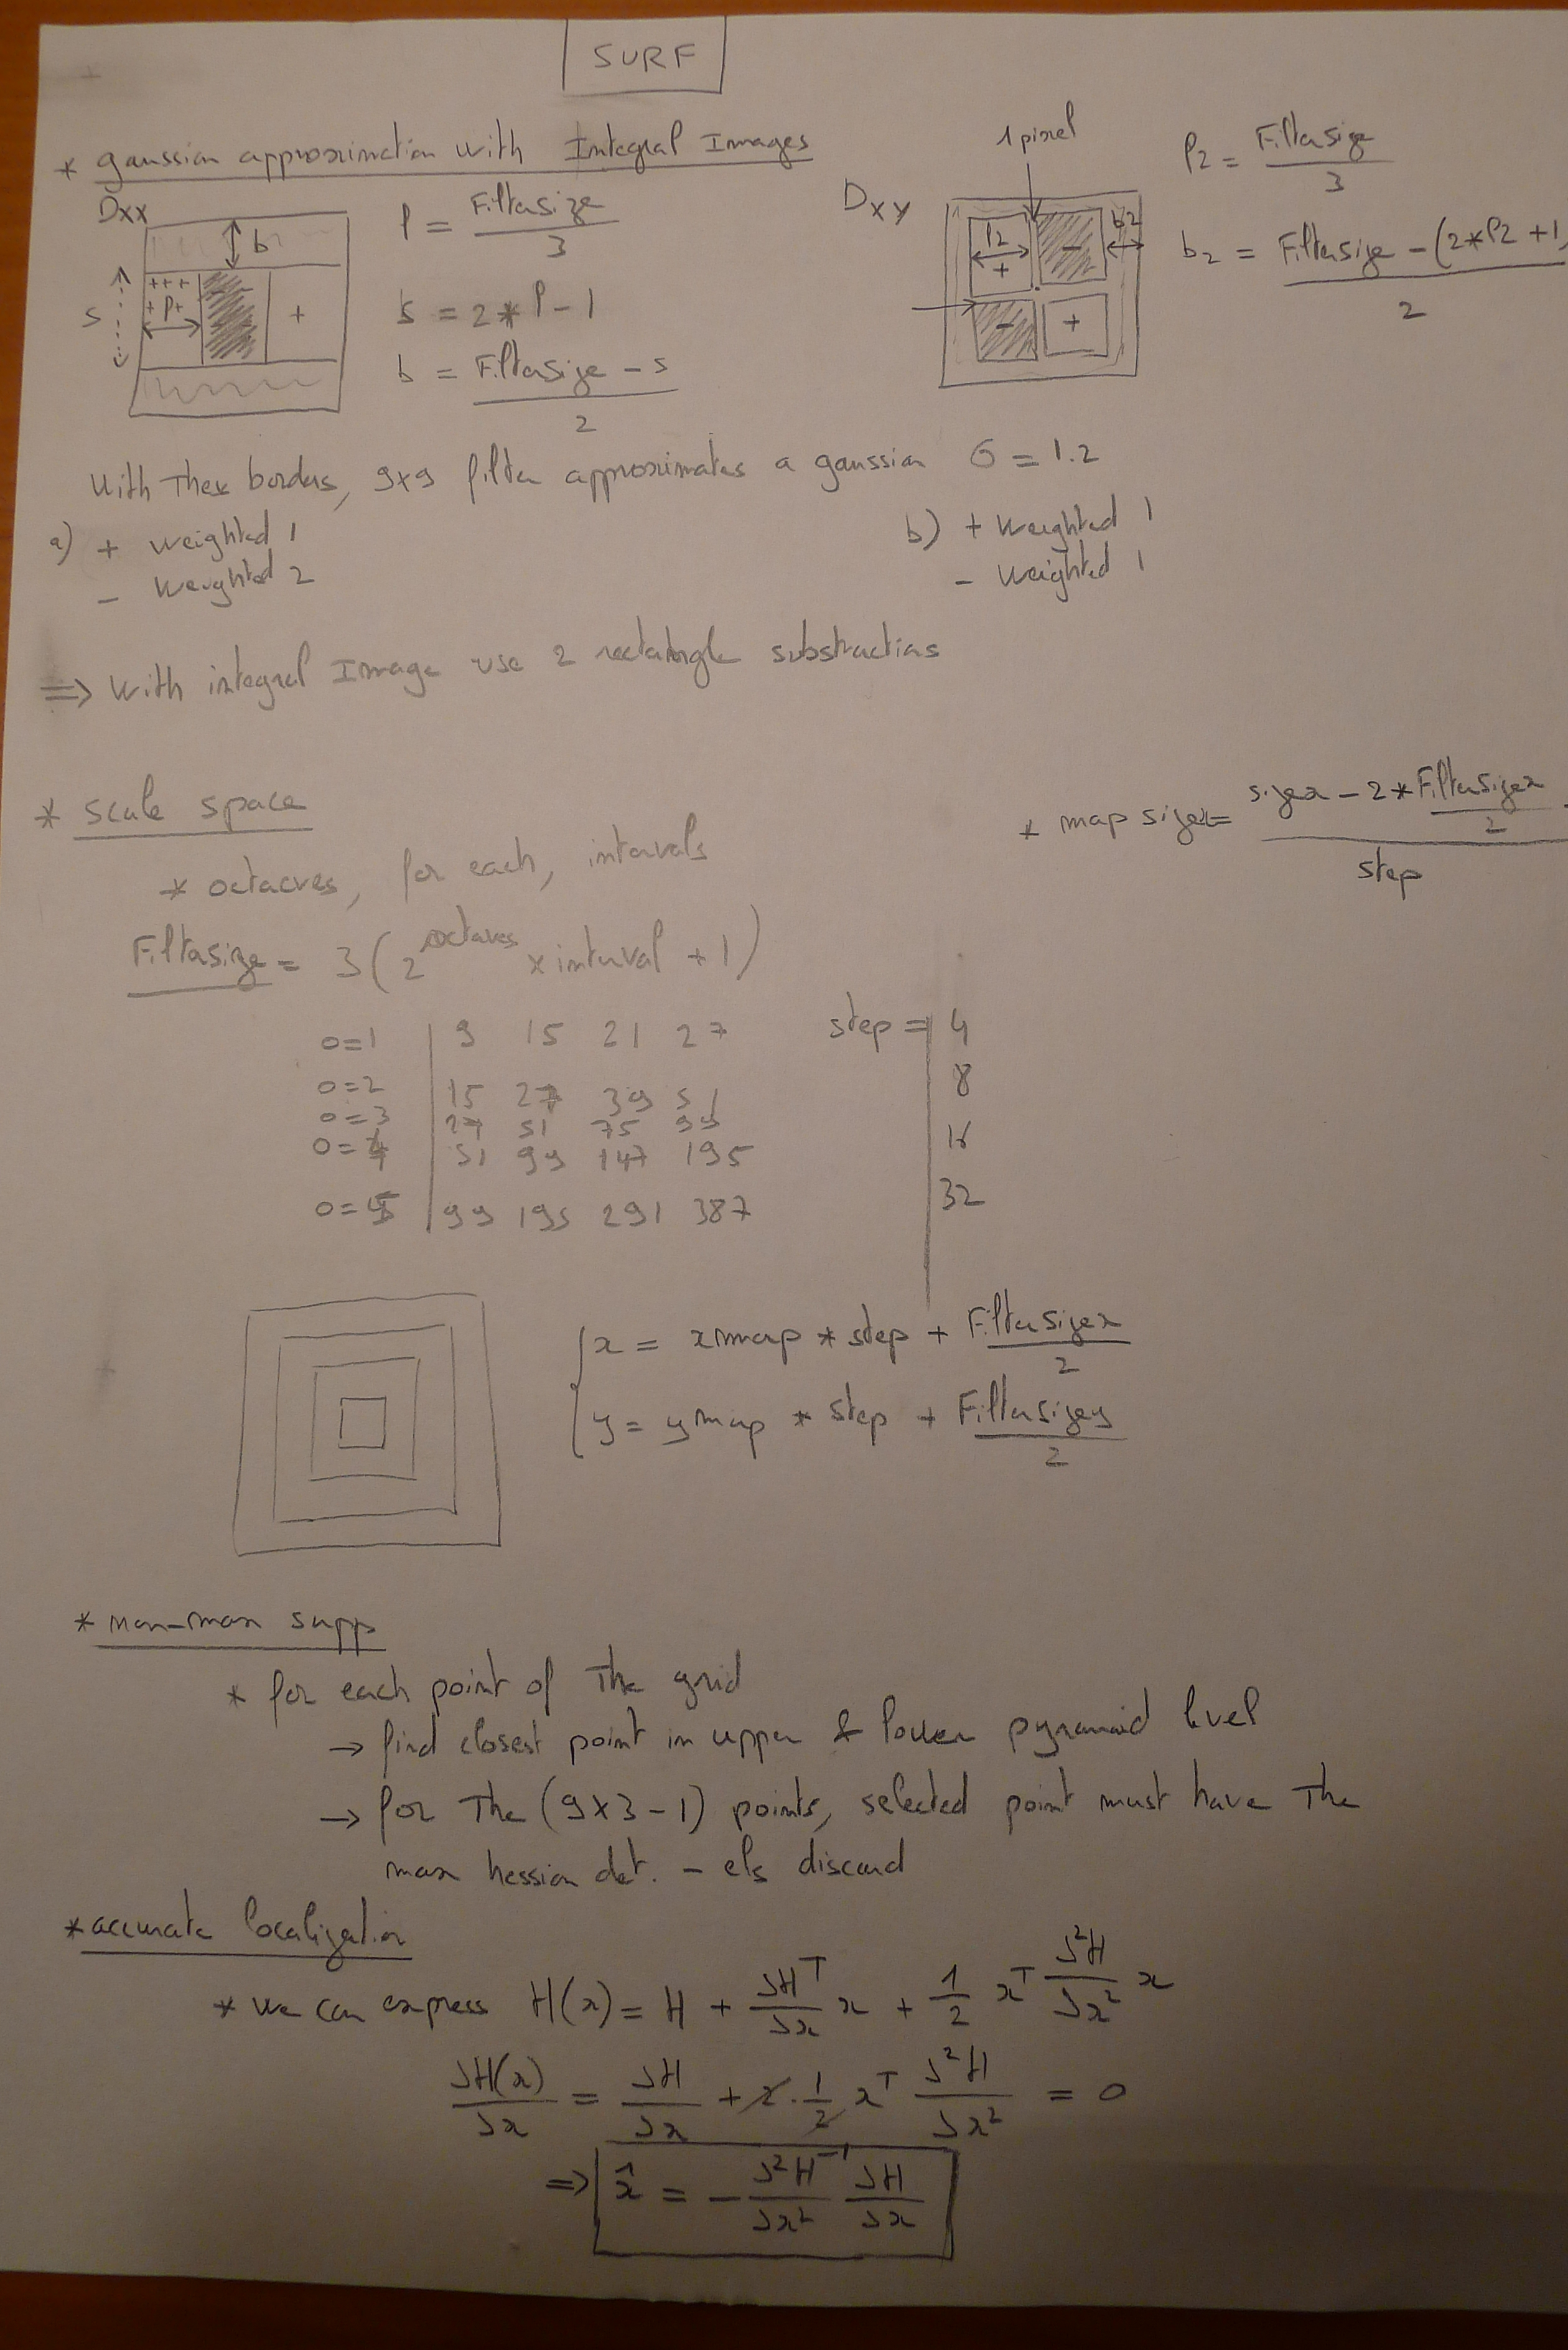 SURF
* gaussian approximation with Integral Images
Dxx
b
+++
+ l +
-
+
s
l = Filtersize / 3
s = 2 * l - 1
b = Filtersize - s / 2
1 pixel
Dxy
l2
+
-
b2
-
+
l2 = Filtersize / 3
b2 = Filtersize - (2 * l2 + 1 / 2
With these borders, 9x9 filter approximates a gaussian σ = 1.2
a) + weighted 1
- weighted 2
b) + weighted 1
- weighted 1
=> With integral Image use 2 rectangle substractions
* scale space
* map sizex = sizex - 2 * Filtersizex / 2 / step
* octaves, for each, intervals
Filtersize = 3 ( 2^octaves x interval + 1 )
o=1 | 9 15 21 27
o=2 | 15 27 39 51
o=3 | 27 51 75 99
o=4 | 51 99 147 195
o=5 | 99 195 291 387
step = | 4
8
16
32
x = xmap * step + Filtersizex / 2
y = ymap * step + Filtersizey / 2
* non-max supp
* for each point of the grid
→ find closest point in upper & lower pyramid level
→ for the (9x3-1) points, selected point must have the
max hessian det. - els discard
* accurate localization
* we can express H(x) = H + ∂H^T/∂x x + 1/2 x^T ∂²H/∂x² x
∂H(x)/∂x = ∂H/∂x + 2 · 1/2 x^T ∂²H/∂x² = 0
=> x̂ = - ∂²H^-1/∂x² ∂H/∂x